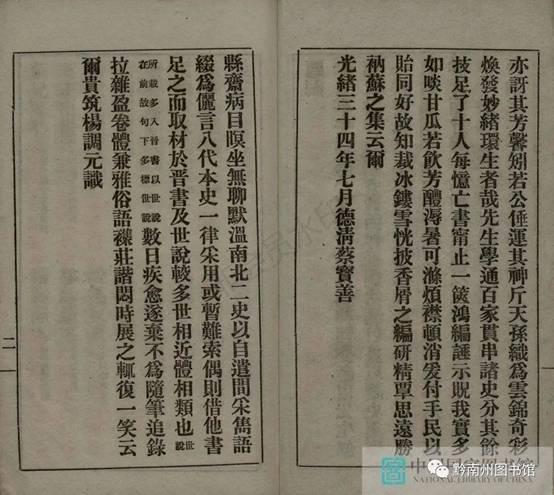 亦訝其芳馨矧若公倕運其神斤天孫織爲雲錦奇彩
煥發妙緒環生者哉先生學通百家貫串諸史分其餘
技足了十人每憶亡書甯止一篋鴻編誰示貺我實多
如啖甘瓜若飲芳醴溽暑可滌煩襟頓消爰付手民以
貽同好故知裁冰鏤雪恍披香屑之編研精覃思遠勝
衲蘇之集云爾
光緒三十四年七月德淸蔡寶善
縣齋病目瞑坐無聊默溫南北二史以自遣間宋雋語
綴爲儷言八代本史一律宋用或暫難索偶則借他書
足之而取材於晉書及世說較多世相近體相類也世說
所載多入晉書以世說
在前故句下多標世說數日疾愈遂棄不爲隨筆追錄
拉雜盈卷體兼雅俗語襍莊諧悶時展之輒復一笑云
爾貴筑楊調元識
二
中國國家圖書館
NATIONAL LIBRARY OF CHINA
黔南州图书馆